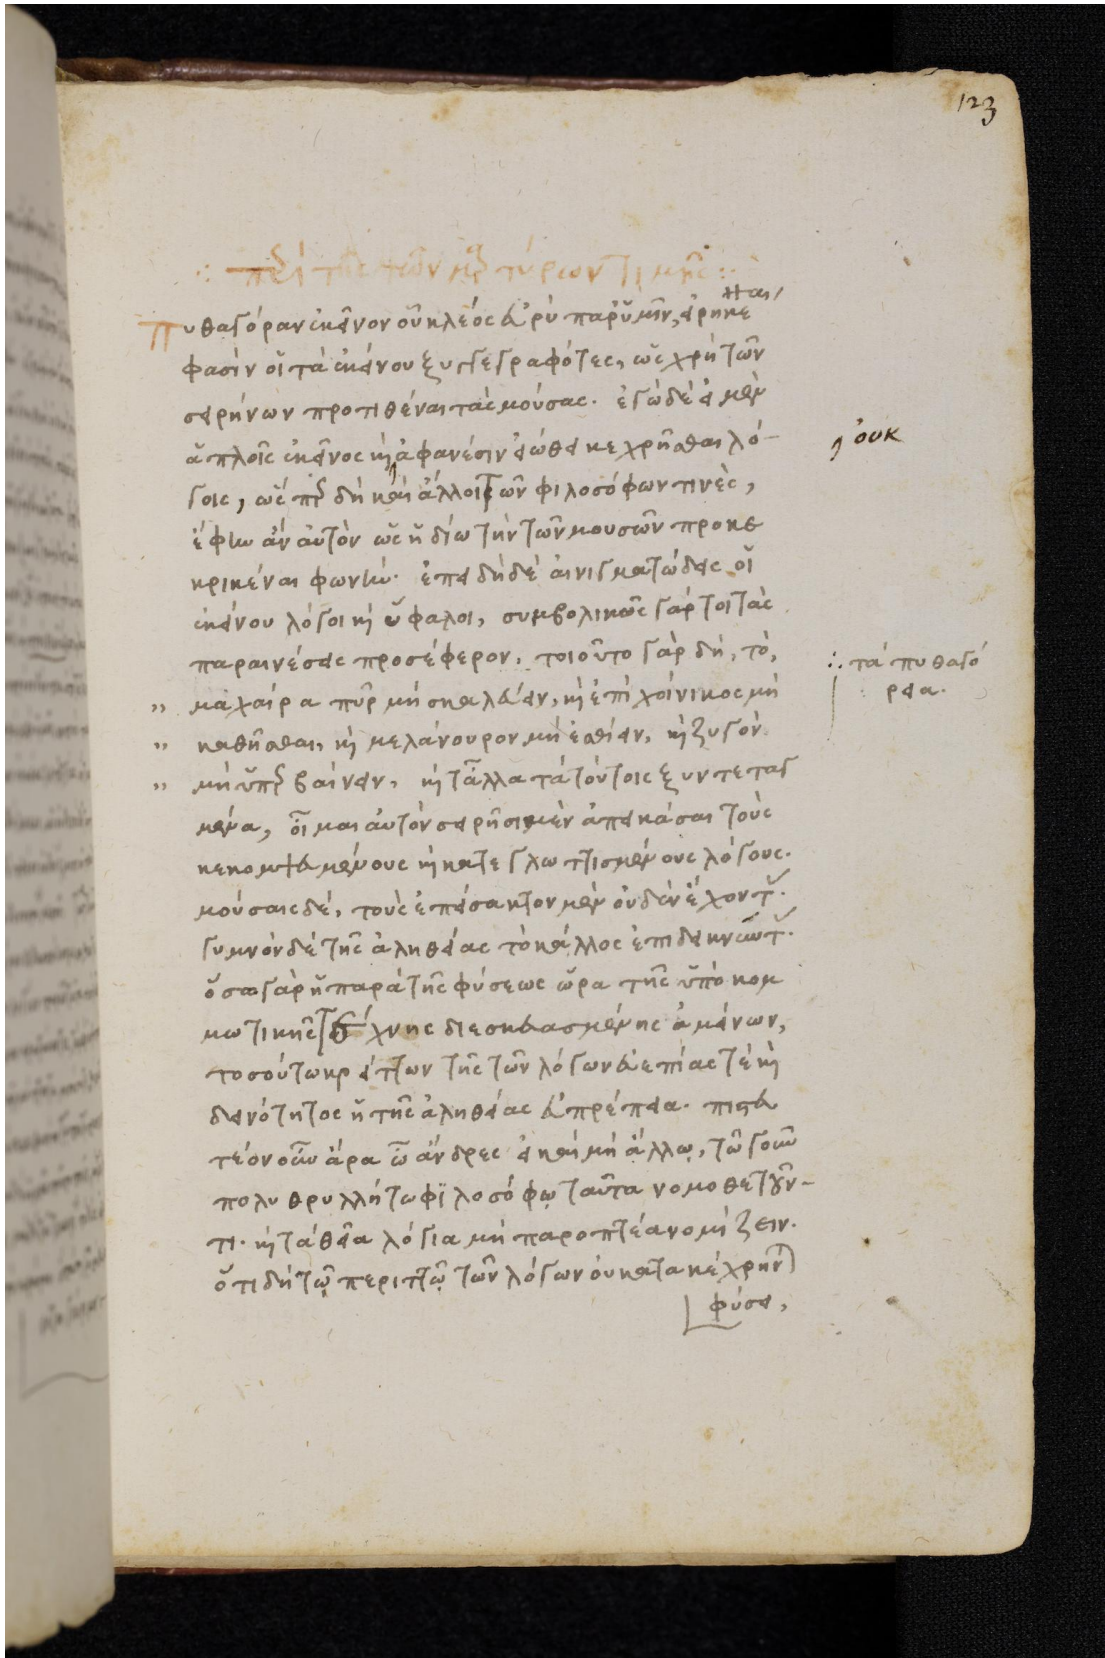 123
∴ περὶ τῆς τῶν μαρτύρων τιμῆς ∴
Πυθαγόραν ἐκεῖνον οὗ κλέος εὐρὺ παρ' ὑμῖν, εἰρηκέ
ναι
φασὶν οἱ τὰ ἐκείνου ξυγγεγραφότες, ὡς χρὴ τῶν
σειρήνων προτιθέναι τὰς μούσας. ἐγὼ δὲ εἰ μὲν
ἁπλοῖς ἐκεῖνος καὶ ἀφανέσιν εἰώθει κεχρῆσθαι λό-
οὐκ
γοις, ὥσπερ δὴ καὶ ἄλλοι τῶν φιλοσόφων τινὲς,
ἔφην ἂν αὐτὸν ὡς ἡδίω τὴν τῶν μουσῶν προκε
κρικέναι φωνήν. ἐπειδὴ δὲ αἰνιγματώδεις οἱ
ἐκείνου λόγοι καὶ ὕφαλοι, συμβολικῶς γάρ τοι τὰς
παραινέσεις προσέφερον. τοιοῦτο γὰρ δὴ, τὸ,
∴ τὰ πυθαγό
ρεια.
" μαχαίρα πῦρ μὴ σκαλεύειν, καὶ ἐπὶ χοίνικος μὴ
" καθῆσθαι, καὶ μελάνουρον μὴ ἐσθίειν, καὶ ζυγὸν
" μὴ ὑπερβαίνειν, καὶ τἆλλα τὰ τούτοις ξυντεταγ
μένα, οἶμαι αὐτὸν σειρῆσι μὲν ἀπεικάσαι τοὺς
κεκομψευμένους καὶ κατεγλωττισμένους λόγους.
μούσαις δὲ, τοὺς ἐπείσακτον μὲν οὐδὲν ἔχοντας.
γυμνὸν δὲ τῆς ἀληθείας τὸ κάλλος ἐπιδεικνύντας.
ὅσω γὰρ ἡ παρὰ τῆς φύσεως ὥρα τῆς ὑπὸ κομ
μωτικῆς τέχνης διεσκευασμένης ἀμείνων,
τοσούτω κρείττων τῆς τῶν λόγων εὐεπίας τὲ καὶ
δεινότητος ἡ τῆς ἀληθείας εὐπρέπεια. πιστευ
τέον οὖν ἄρα ὦ ἄνδρες εἰ καὶ μὴ ἄλλῳ, τῷ γοῦν
πολυθρυλλήτω φιλοσόφῳ ταῦτα νομοθετοῦν-
τι. καὶ τὰ θεῖα λόγια μὴ παροπτέα νομίζειν.
ὅτι δὴ τῷ περιττῷ τῶν λόγων οὐ κατακέχρηνται
φύσει,